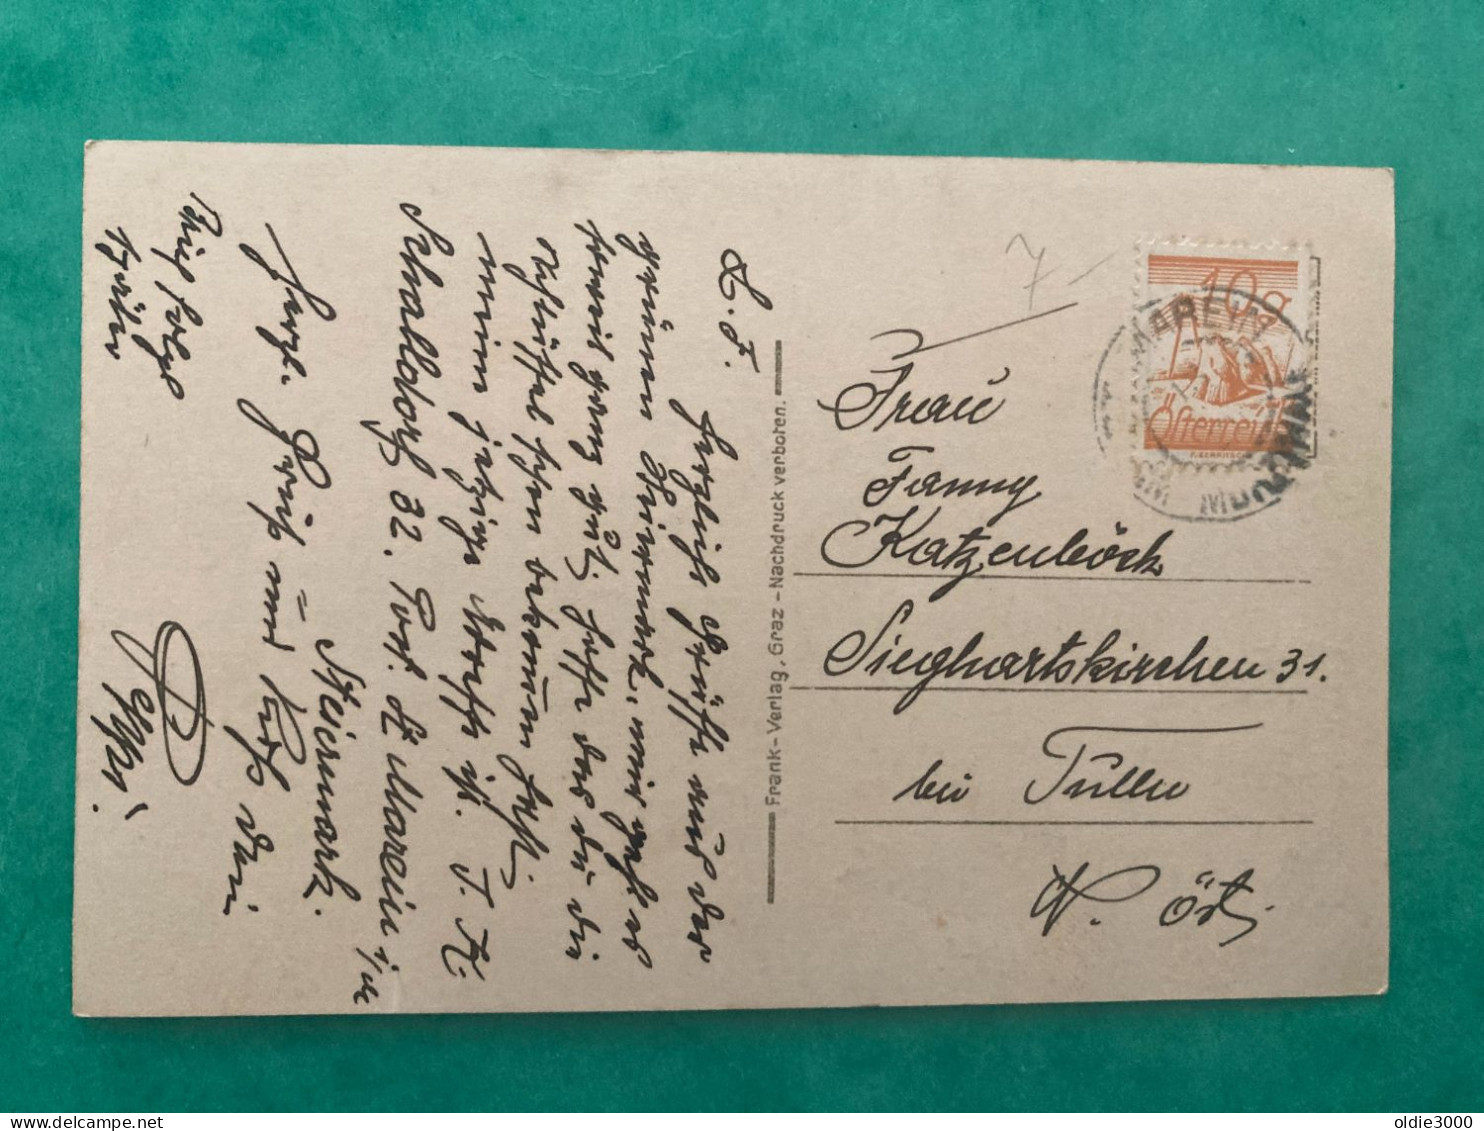 L. F.
Herzliche Grüße aus der
grünen Steiermark, mir geht es
soweit ganz gut, hoffe das du die
Schlüssel schon bekommen hast.
meine jetzige Adresse ist. J. K.
Schaldorf 32. Post. St Marein i/M
Steiermark.
Herzl. Gruß und Kuß dein
Brief folgt
später
Frank-Verlag, Graz - Nachdruck verboten.
7-
10g
Österreich
MAREIN
Frau
Fanny
Katzenböck
Sieghartskirchen 31.
bei Tulln
N. Öst.
oldie3000